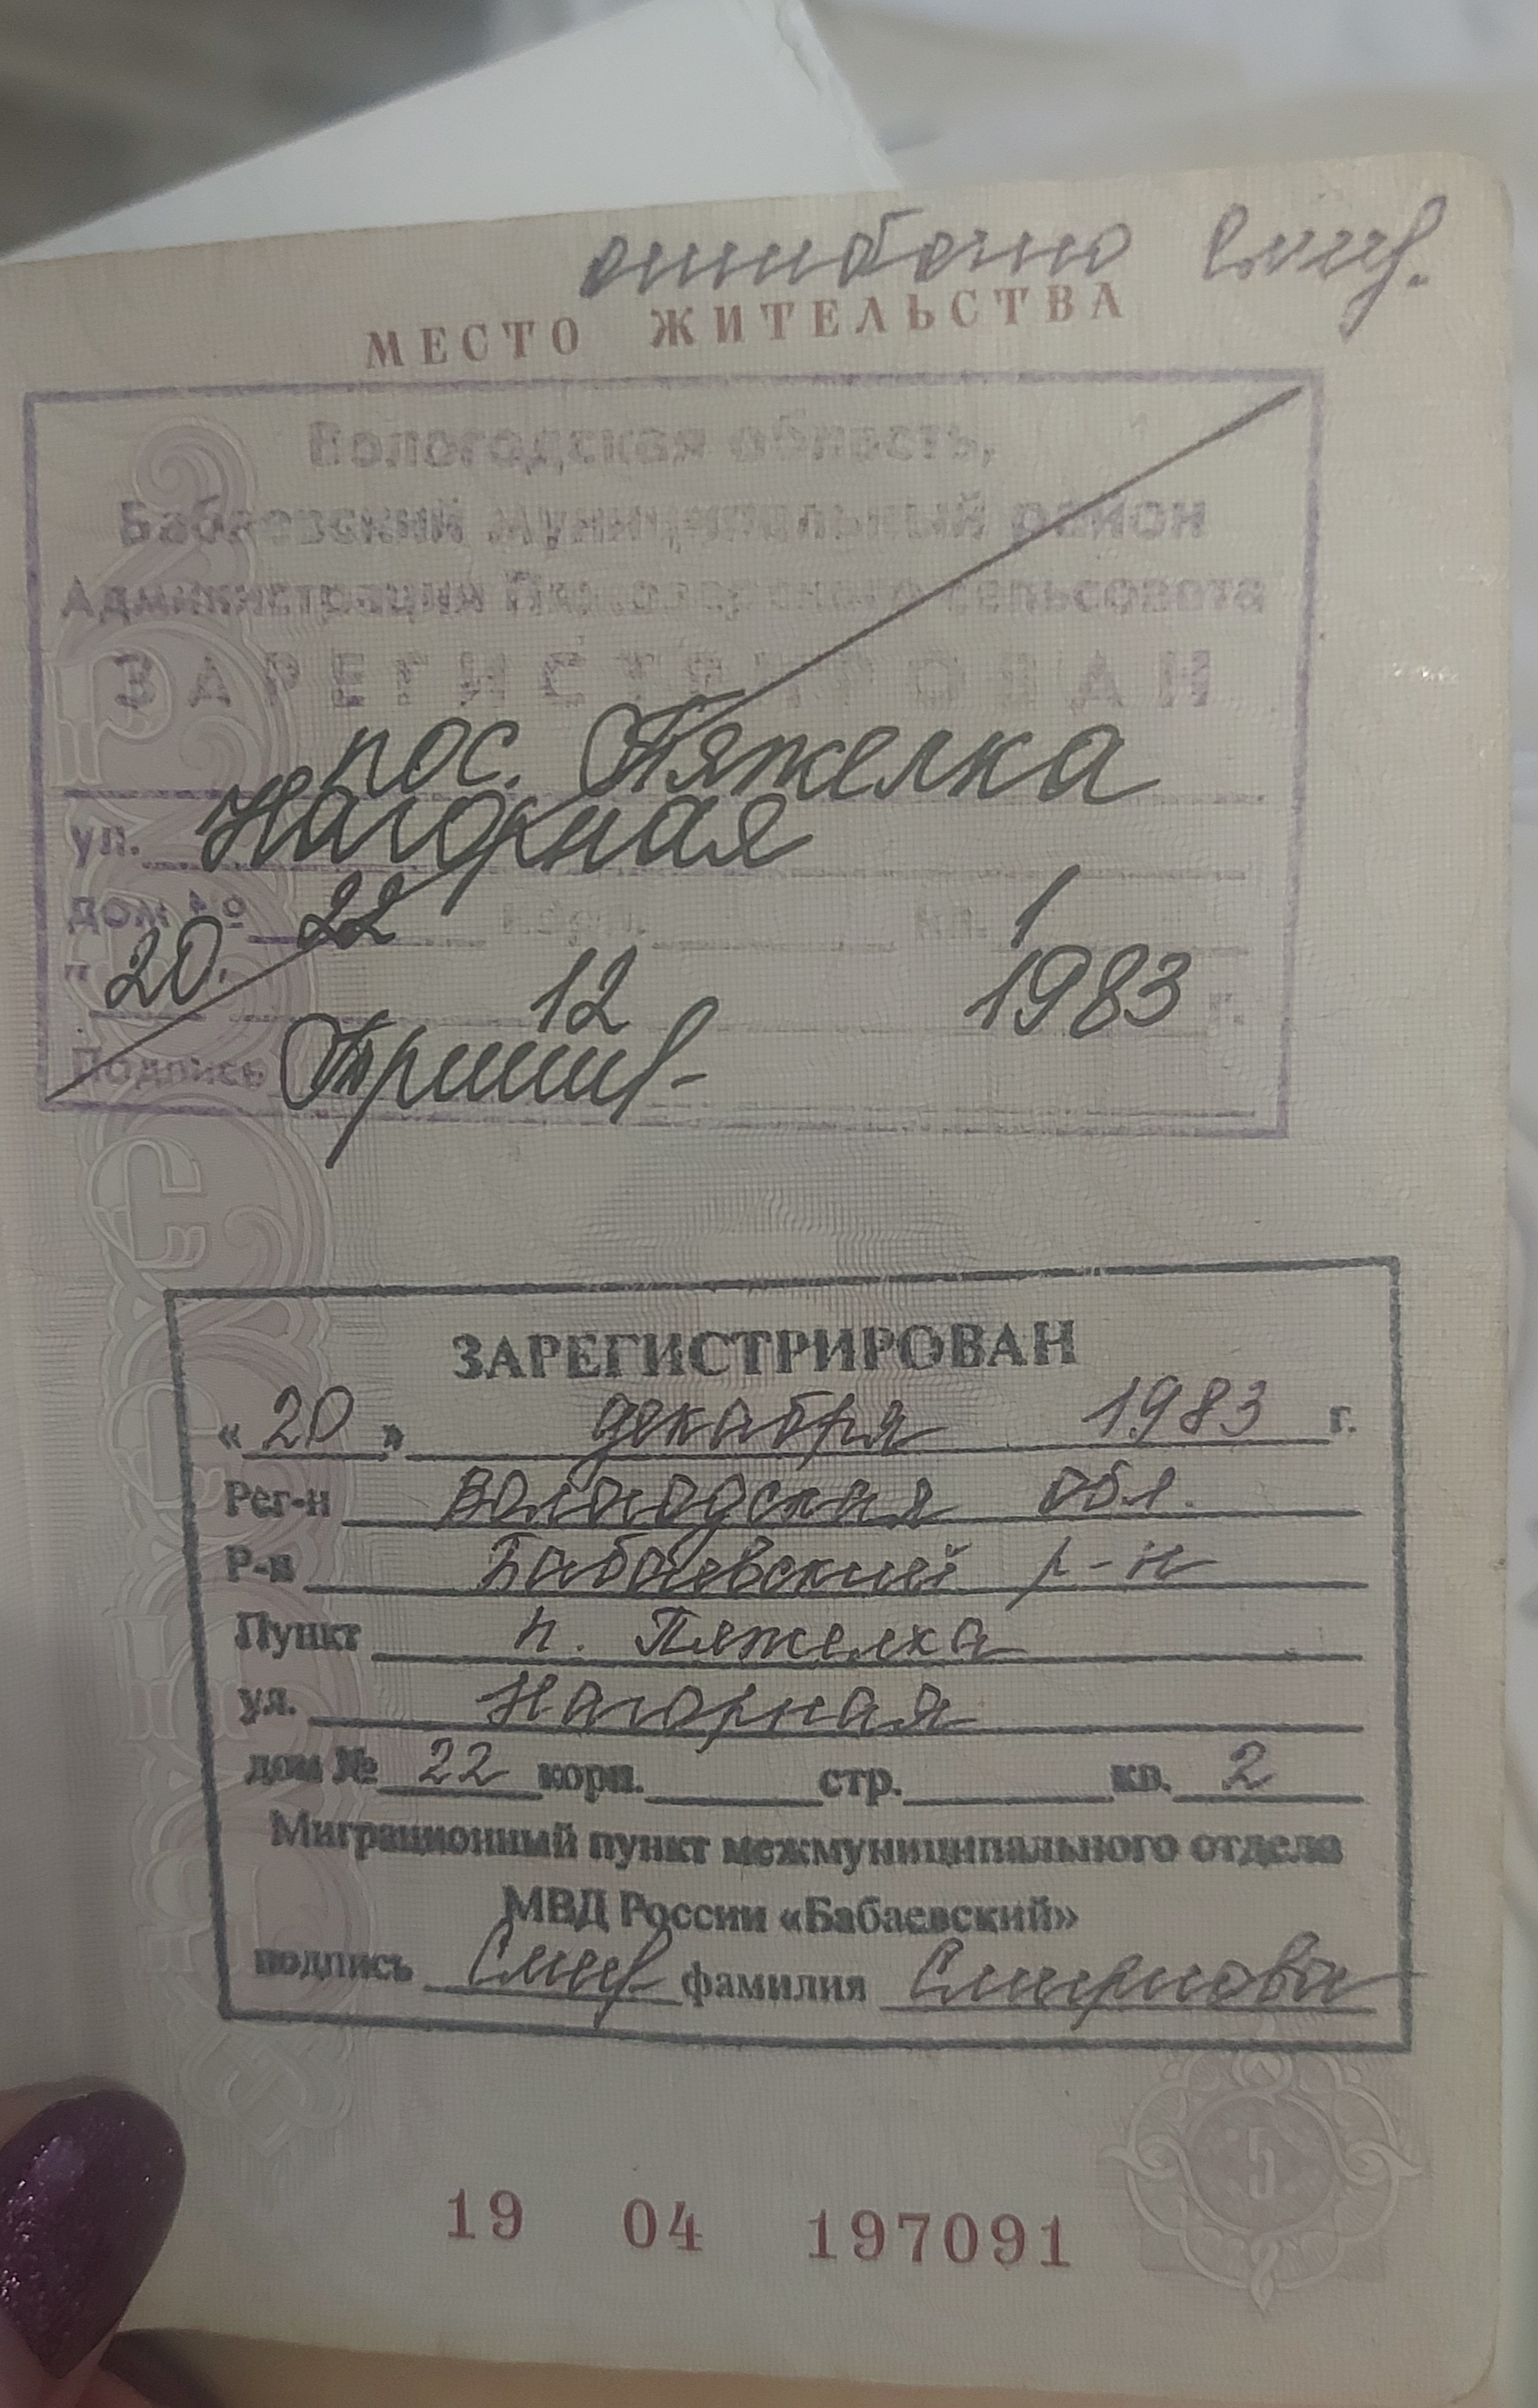 ошибочно Смир.
МЕСТО ЖИТЕЛЬСТВА
Вологодская область,
Бабаевский муниципальный район
Администрация сельсовета
ЗАРЕГИСТРИРОВАН
пос. Пяжелка
ул. Нагорная
дом № 22 корп. кв. 1
"20" 12 1983 г.
Подпись
ЗАРЕГИСТРИРОВАН
«20» декабря 1983 г.
Рег-н Вологодская обл.
Р-н Бабаевский р-н
Пункт п. Пяжелка
ул. Нагорная
дом № 22 корп. стр. кв. 2
Миграционный пункт межмуниципального отдела
МВД России «Бабаевский»
подпись Смир фамилия Смирнова
5
19 04 197091